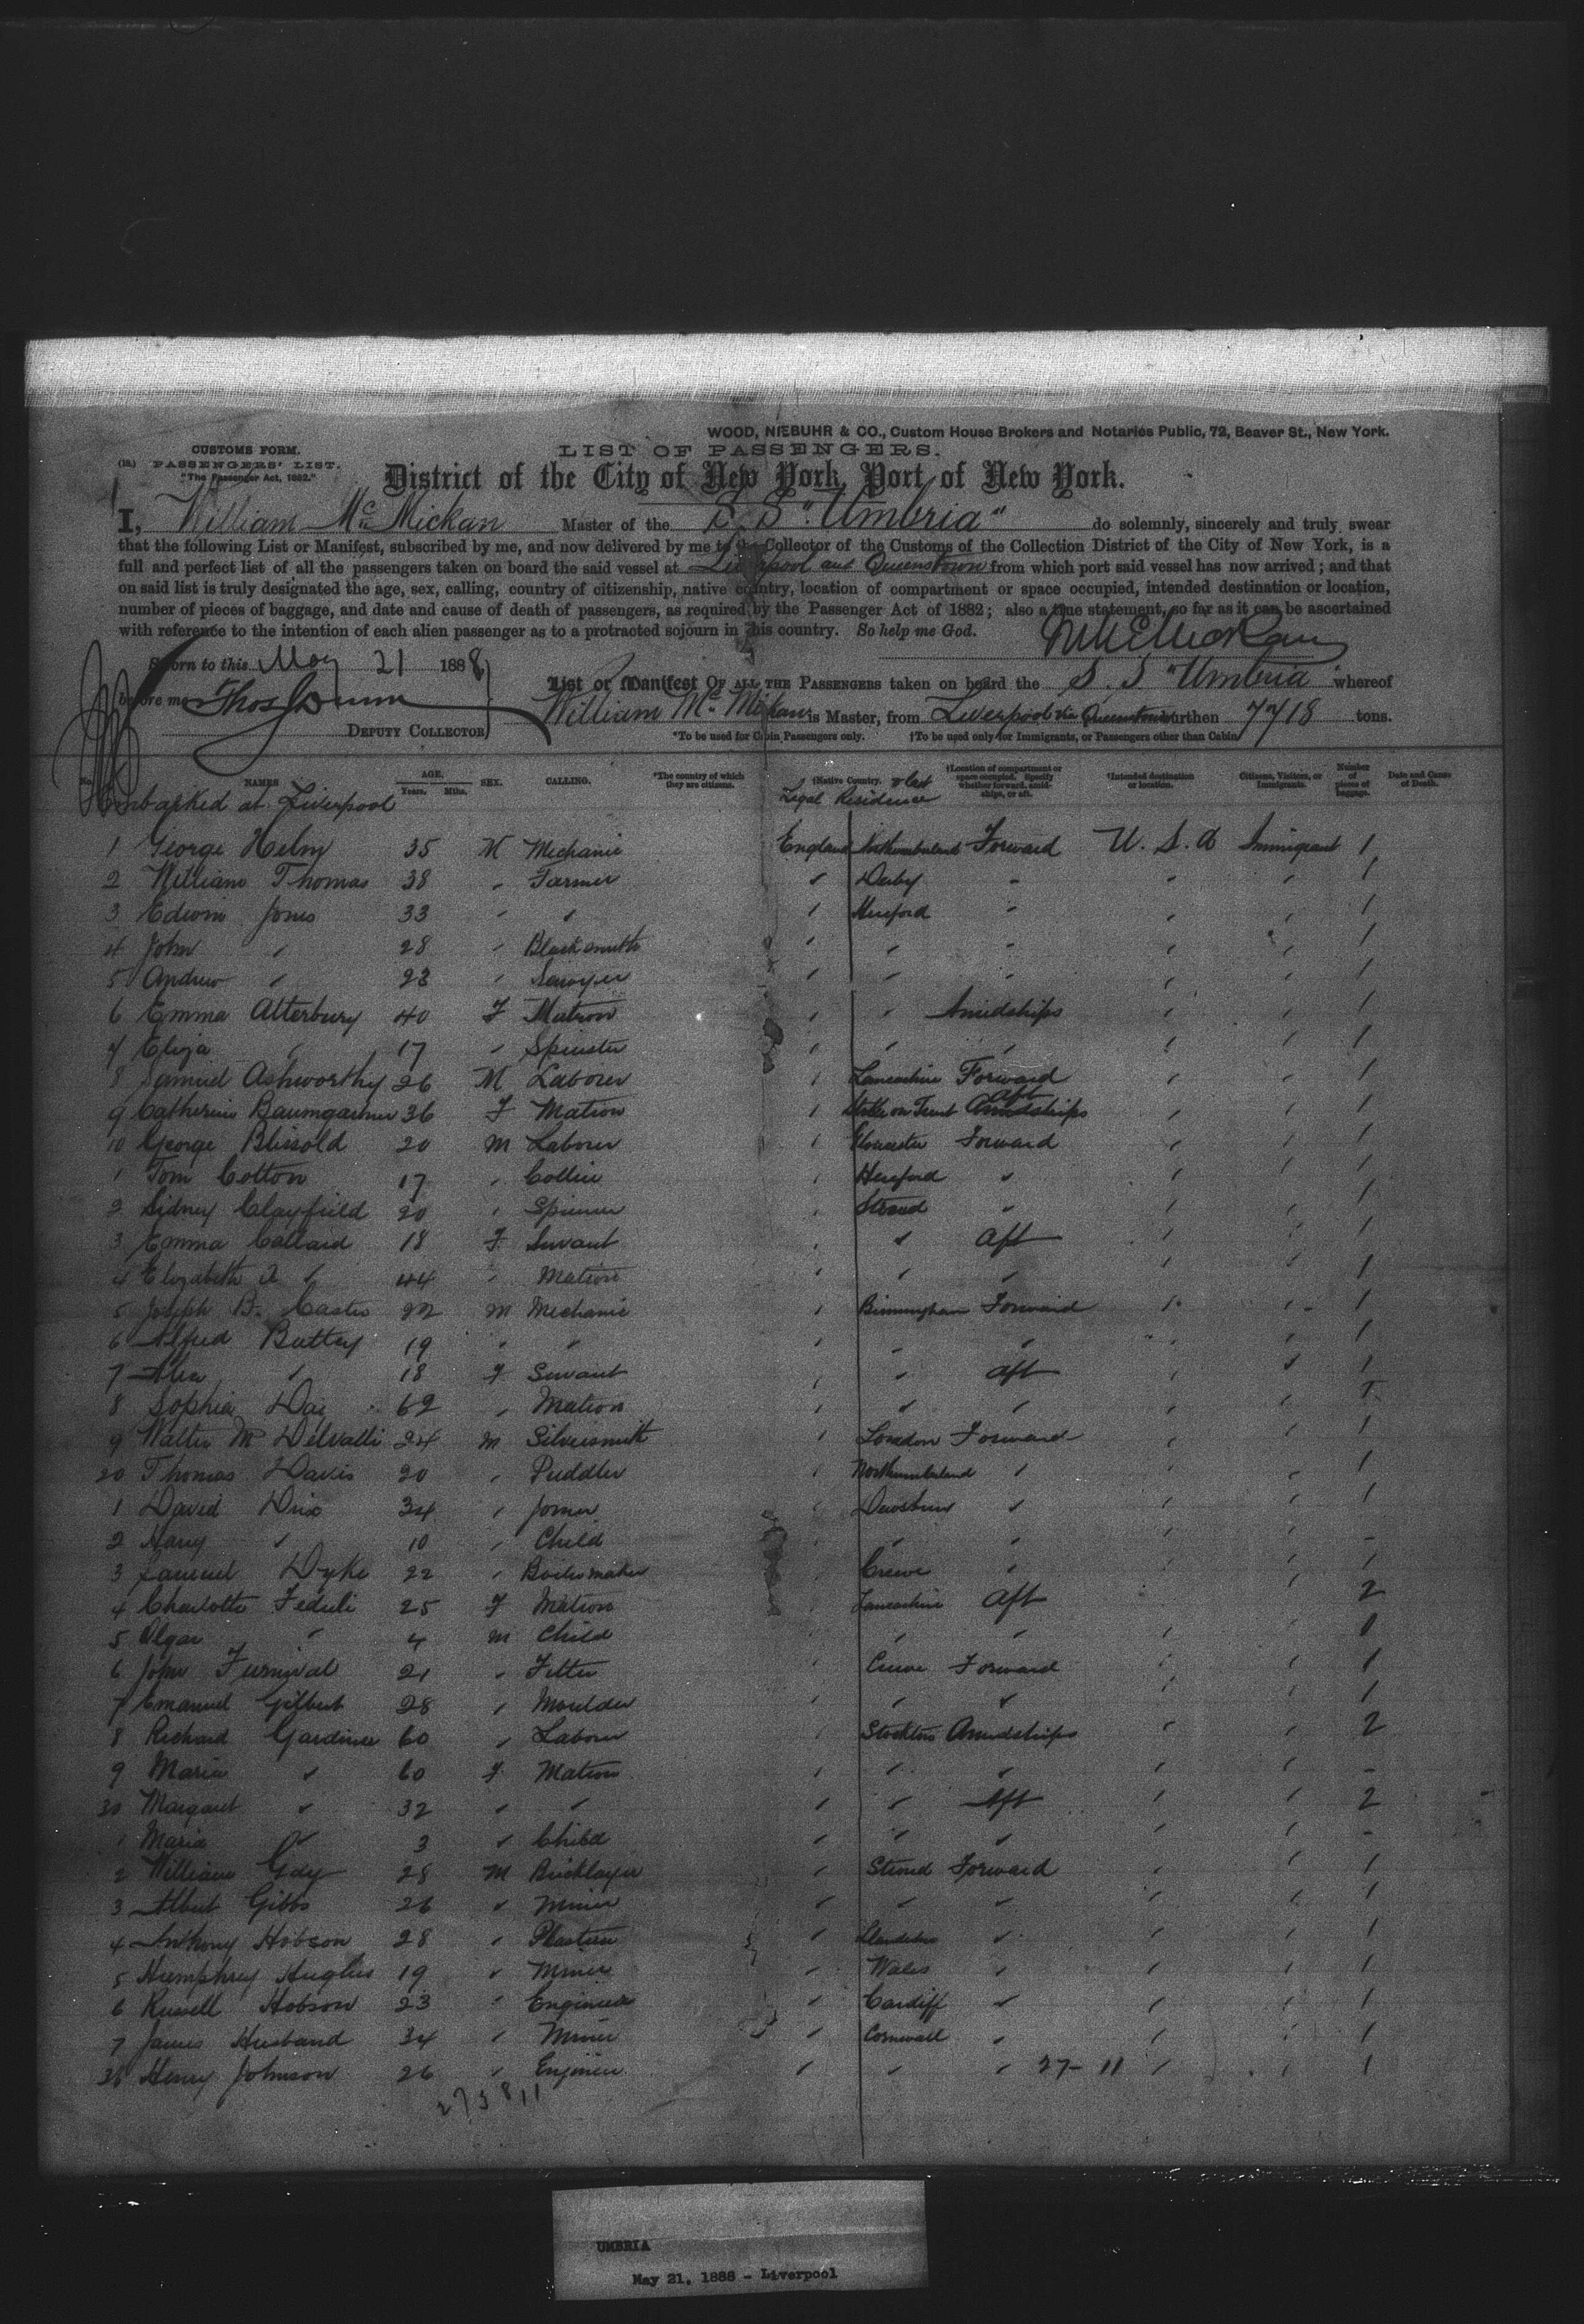 WOOD, NIEBUHR & CO., Custom House Brokers and Notaries Public, 72, Beaver St., New York.
CUSTOMS FORM.
LIST OF PASSENGERS.
PASSENGERS' LIST.
"The Passenger Act, 1882."
District of the City of New York, Port of New York.
I, William McMickan Master of the S.S "Umbria" do solemnly, sincerely and truly swear
that the following List or Manifest, subscribed by me, and now delivered by me to the Collector of the Customs of the Collection District of the City of New York, is a
full and perfect list of all the passengers taken on board the said vessel at Liverpool and Queenstown from which port said vessel has now arrived; and that
on said list is truly designated the age, sex, calling, country of citizenship, native country, location of compartment or space occupied, intended destination or location,
number of pieces of baggage, and date and cause of death of passengers, as required by the Passenger Act of 1882; also a true statement, so far as it can be ascertained
with reference to the intention of each alien passenger as to a protracted sojourn in this country. So help me God.
Sworn to this May 21 1888
before me Thos
DEPUTY COLLECTOR
List or Manifest OF ALL THE PASSENGERS taken on board the S. S "Umbria" whereof
William Mc Mickan is Master, from Liverpool via Queenstown burthen 7718 tons.
*To be used for Cabin Passengers only. †To be used only for Immigrants, or Passengers other than Cabin
No. NAMES AGE. Years. Mths. SEX. CALLING. *The country of which they are citizens. †Native Country. †Location of compartment or space occupied. Specify whether forward, amidships, or aft. †Intended destination or location. Citizens, Visitors, or Immigrants. Number of pieces of baggage. Date and Cause of Death.
Embarked at Liverpool & last Legal Residence
1 George 35 M Mechanic England Northumberland Forward U. S. A Immigrant 1
2 William Thomas 38 " Farmer " Derby " " " 1
3 Edwin Jones 33 " " " Hereford " " " 1
4 John " 28 " Blacksmith " " " " " 1
5 Andrew " 23 " Sawyer " " " " " 1
6 Emma Atterbury 40 F Matron " " Amidships " " 1
7 Eliza " 17 " Spinster " " " " " 1
8 Samuel Ashworthy 26 M Laborer " Lancashire Forward " " 1
9 Catherine Baumgartner 36 F Matron " Stoke on Trent Amidships aft " " 1
10 George 20 M Laborer " Gloucester Forward " " 1
1 Tom Cotton 17 " Collier " Hereford " " " 1
2 Sidney Clayfield 20 " Spinner " Stroud " " " 1
3 Emma Collard 18 F Servant " " Aft " " 1
4 Elizabeth A " 44 " Matron " " " " " 1
5 Joseph B. 22 M Mechanic " Birmingham Forward " " 1
6 Alfred Buttey 19 " " " " " " " 1
7 " 18 F Servant " " aft " " 1
8 Sophia 62 " Matron " " " " " 1
9 Walter M Delvalli 24 M Silversmith " London Forward " " 1
20 Thomas Davis 20 " Puddler " Northumberland " " " 1
1 David Dix 34 " Joiner " " " " 1
2 Harry " 10 " Child " " " " " -
3 Samuel Dyke 22 " Boilermaker Crewe " " 1
4 Charlotte 25 F Matron Lancashire Aft 2
5 Olgar " 4 M Child " " " " 0
6 John Furnival 21 " Fitter " Crewe Forward " " 1
7 Emanuel Gilbert 28 " Moulder " " " " " 1
8 Richard Gardiner 60 " Laborer " Stockton Amidships " " 2
9 Maria " 60 F Matron " " " " " -
30 Margaret " 32 " " " " Aft " " 2
1 Maria " 3 " Child " " " " " -
2 William 28 M Bricklayer " Stroud Forward " " 1
3 Albert Gibbs 26 " Miner " " " " " 1
4 Anthony Hobson 28 " Plasterer " " " " 1
5 Humphrey Hughes 19 " Miner " Wales " " " 1
6 Russell Hobson 23 " Engineer " Cardiff " " " 1
7 James Husband 34 " Miner " Cornwall " " " 1
38 Henry Johnson 26 " Engineer " " " 27- 11 " " 1
UMBRIA
May 21, 1888 - Liverpool